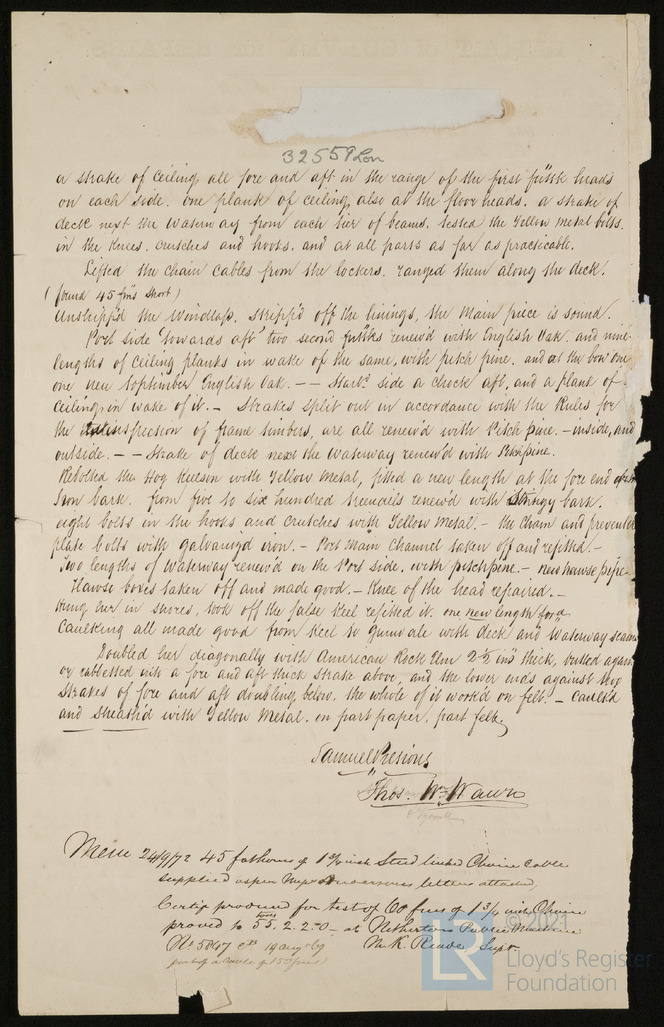 32559 Lon
a strake of ceiling all fore and aft in the range of the first futtk heads
on each side. one plank of ceiling also at the floor heads. a strake of
deck next the waterway from each tier of beams. tested the Yellow metal bolts.
in the knees. crutches and hooks. and at all parts as far as practicable.
Lifted the chain cables from the lockers. ranged them along the deck.
(found 45 fms short)
Unshipp'd the Windlass, stripp'd off the linings, the Main piece is sound.
Port side "towards aft" two second futtks renew'd with English Oak. and nine
lengths of ceiling planks in wake of the same, with pitch pine. and at the bow one
one new toptimber English Oak. — — Starbd side a chock aft, and a plank of
Ceiling, in wake of it. — Strakes split out in accordance with the Rules for
the inspection of frame timbers, are all renew'd with Pitch pine. — inside, and
outside. — — Strake of deck next the Waterway renew'd with Pitchpine.
Rebolted the Hog Keelson with Yellow Metal, fitted a new length at the fore end of it
Iron bark. from five to six hundred treenails renew'd with Stringy bark.
eight bolts in the hooks and crutches with Yellow Metal. — the chain and preventer
plate bolts with galvanizd iron. — Port Main Channel taken off and refitted. —
Two lengths of Waterway renew'd on the Port side. with pitchpine. — new hawse pipe
Hawse boxes taken off and made good. — Knee of the head repaired. —
Hung her in shores, took off the false Keel refitted it. one new length ford
Caulking all made good from Keel to Gunwale with deck and Waterway seams
Doubled her diagonally with American Rock Elm 2½ ins thick, butted against
or rabbetted into a fore and aft thick strake above, and the lower ends against two
Strakes of fore and aft doubling below. the whole of it work'd on felt. — Caulk'd
and Sheath'd with Yellow Metal. on part paper. part felt.
Samuel Presious
Thos. Wm. Wawn
Mem 24/9/72 45 fathoms of 1¾ inch Stud linked Chain Cable
supplied as per letter attached,
Certif produced for test of 60 fms of 1¾ inch Chain
proved to 55. 2. 2. 0 tons at Netherton Public Machine
No. 5847 19 Aug 69 Wm. K. Reade Supt.
part of a Cable of 150 fms)
© 2021
LR
Lloyd's Register
Foundation